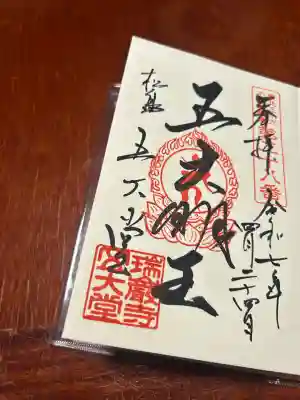 奉拝
令和七年
四月二十四日
五大明王
松島
五大堂
瑞巌寺
五大堂